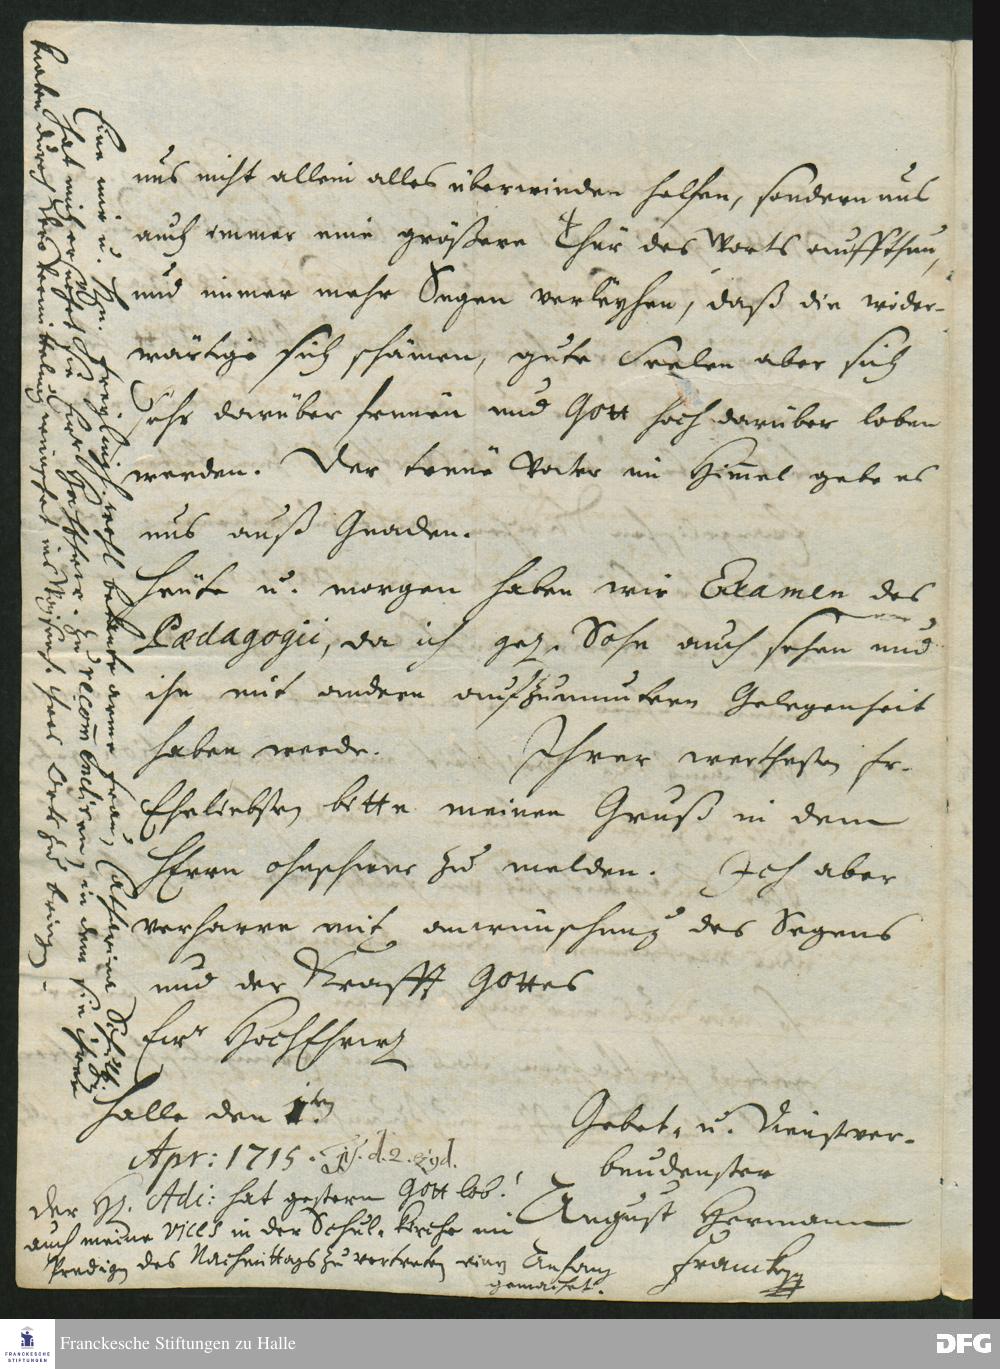 uns nicht allein alles überwinden helfen, sondern uns
auch immer eine größere Thür des Worts auffthun,
und immer mehr Segen verleyhen, daß die wider-
wärtige sich schämen, gute Seelen aber sich
sehr darüber freuen und Gott hoch darüber loben
werden. Der treue Vater im Himmel gebe es
uns auß Gnaden.
Heute u. morgen haben wir Examen des
Pædagogii, da ich Sohn auch sehen und
ihn mit andern aufzumuntern Gelegenheit
haben werde. Ihrer werthesten Fr.
Eheliebsten bitte meinen Gruß in dem
HErrn ohnschwer zu melden. Ich aber
verharre mit anwünschung des Segens
und der Krafft Gottes
Ew. HochEhrw.
Halle den 1.ten
Apr: 1715.
Gebet- u. Dienstver-
bundenster
August Hermann
Francke
Der H. Adj: hat gestern Gott lob!
auch meine vices in der Schul-Kirche im
Predigen des Nachmittags zu vertreten einen Anfang
gemacht.
Eine mir u. Hn. Freylingh. wohl bekante arme Frau, Catharina
hat mich ersuchet sie Ew. zu recom̄endiren, in dem sie ihren
durch Dero Vermittelung wünschet ins Waysenh. ihres Orts zu bringen.
Franckesche Stiftungen zu Halle
FRANCKESCHE
STIFTUNGEN
DFG